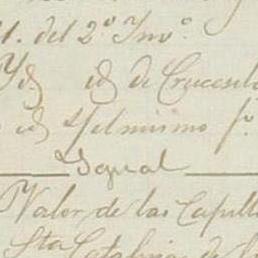 del 2º Inv.º
Yd id de Cruces
id del mismo fº
Igual
Valor de las Capill
Sta Catalina de